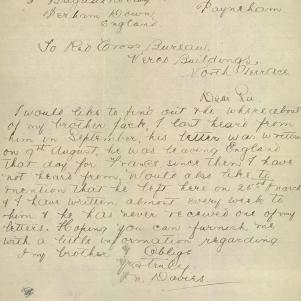 Perham Down Payneham
England
To Red Cross Bureau
Verco Buildings
North Terrace
Dear Sir
I would like to find out the where about
of my brother Jack I last heard from
him in September, his letter was written
on 9th August, he was leaving England
that day for France since then I have
not heard from, would also like to
mention that he left here on 25th March
& I have written almost every week to
him & he has never received one of my
letters. Hoping you can furnish me
with a little information regarding
my brother Oblige
Yrs truly
Davies.